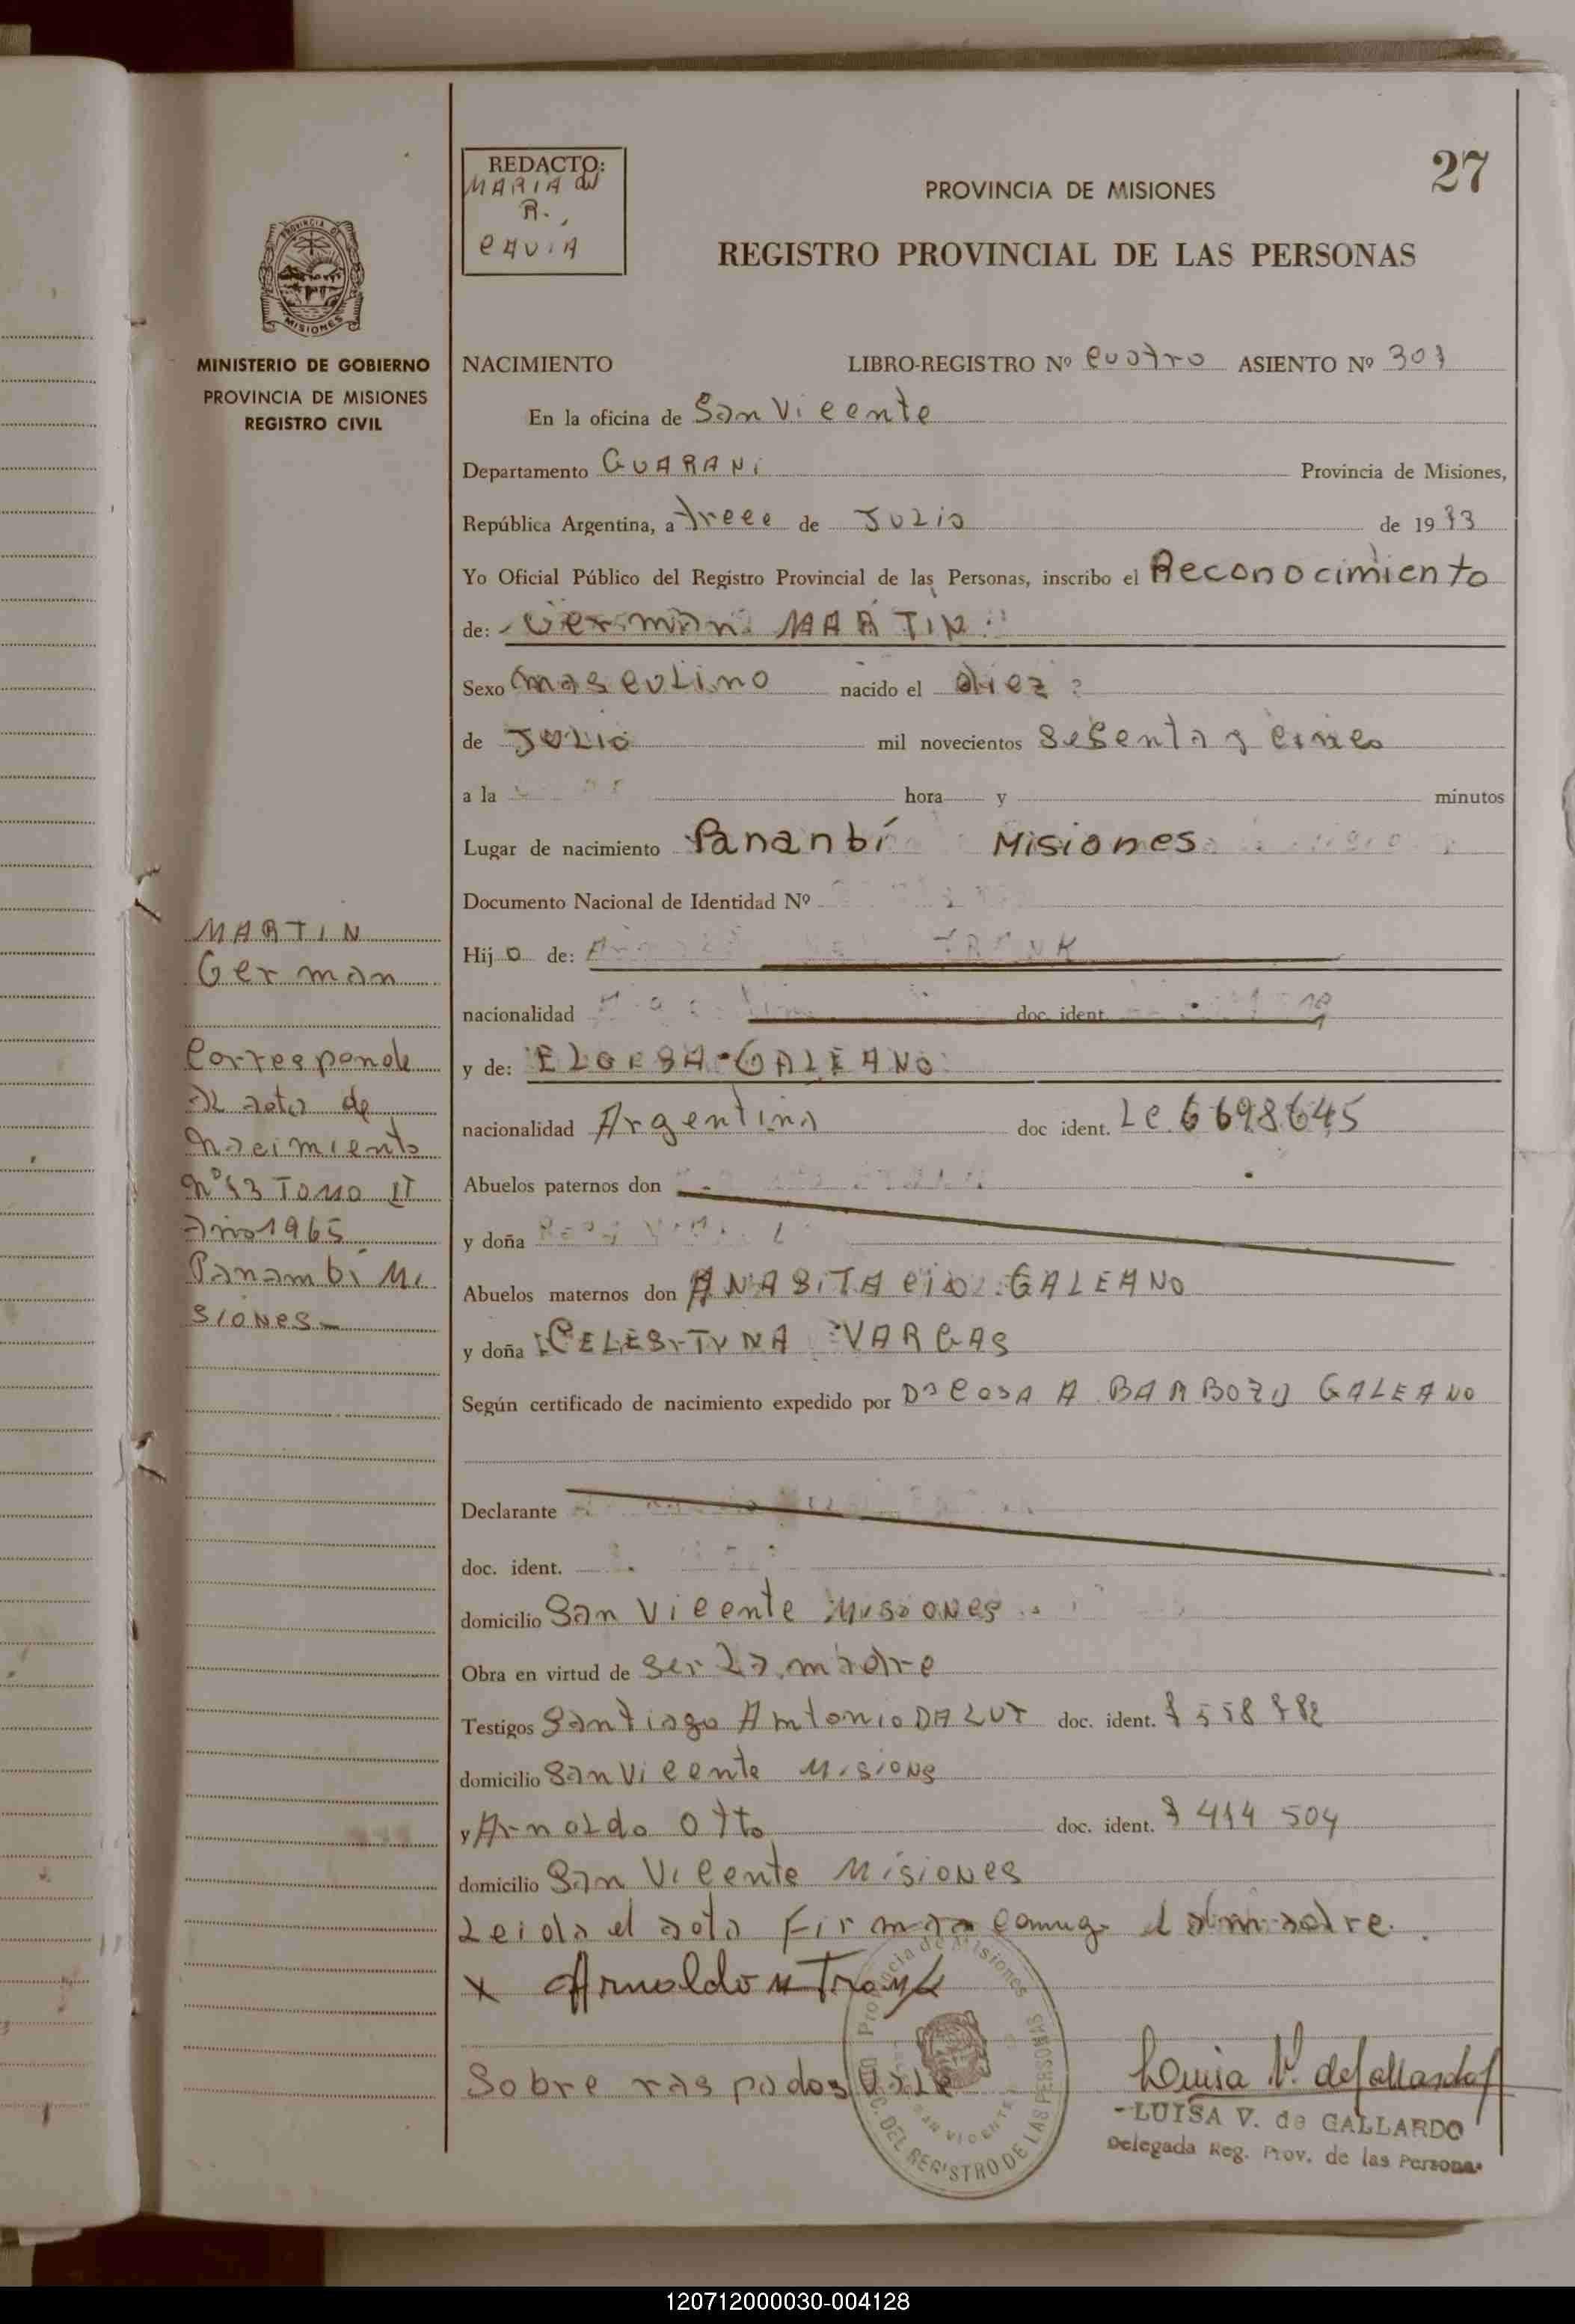 27
REDACTO:
MARIA
R.
CAVIA
PROVINCIA DE MISIONES
REGISTRO PROVINCIAL DE LAS PERSONAS
PROVINCIA DE
MISIONES
MINISTERIO DE GOBIERNO
PROVINCIA DE MISIONES
REGISTRO CIVIL
NACIMIENTO LIBRO-REGISTRO Nº cuatro ASIENTO Nº 307
En la oficina de San Vicente
Departamento GUARANI Provincia de Misiones,
República Argentina, a trece de Julio de 1973
Yo Oficial Público del Registro Provincial de las Personas, inscribo el Reconocimiento
de: German MARTIN
Sexo masculino nacido el diez
de Julio mil novecientos sesenta y cinco
a la hora y minutos
Lugar de nacimiento Pananbí Misiones
Documento Nacional de Identidad Nº
Hijo de:
nacionalidad doc. ident.
y de: ELOISA GALEANO
nacionalidad Argentina doc ident. Lc 6698645
Abuelos paternos don
y doña
Abuelos maternos don ANASITACIO GALEANO
y doña CELESTINA VARGAS
Según certificado de nacimiento expedido por BARBOZO GALEANO
Declarante
doc. ident.
domicilio San Vicente Misiones
Obra en virtud de ser la madre
Testigos Santiago Antonio DALUT doc. ident. 7558782
domicilio San Vicente Misions
y Arnoldo Otto doc. ident. 7 414 504
domicilio San Vicente Misiones
Leida el acta firman conmigo
x Arnoldo
Sobre raspados vale
MARTIN
German
Corresponde
al acta de
Nacimiento
Nº 13 TOMO II
año 1965
Panambi Mi
siones-
Provincia de Misiones
DEL REGISTRO DE LAS PERSONAS
SAN VICENTE
Luisa V. de Gallardo
- LUISA V. de GALLARDO
Delegada Reg. Prov. de las Personas
120712000030-004128